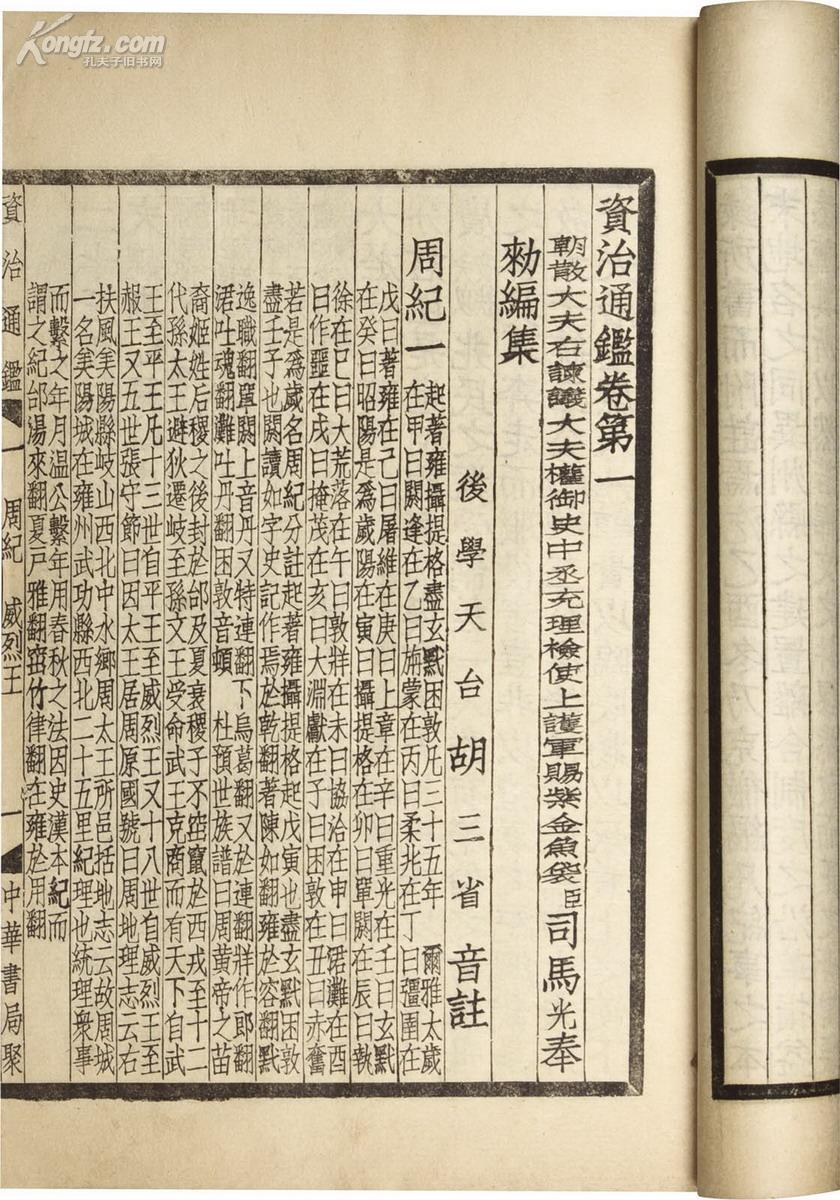 Kongfz.com
孔夫子旧书网
資治通鑑卷第一
朝散大夫右諫議大夫權御史中丞充理檢使上護軍賜紫金魚袋臣司馬光奉
勑編集
後學天台胡三省音註
周紀一
起著雍攝提格盡玄黓困敦凡三十五年 爾雅太歲
在甲曰閼逢在乙曰旃蒙在丙曰柔兆在丁曰彊圉在
戊曰著雍在己曰屠維在庚曰上章在辛曰重光在壬曰玄黓
在癸曰昭陽是爲歲陽在寅曰攝提格在卯曰單閼在辰曰執
徐在巳曰大荒落在午曰敦牂在未曰協洽在申曰涒灘在酉
曰作噩在戌曰掩茂在亥曰大淵獻在子曰困敦在丑曰赤奮
若是爲歲名周紀分註起著雍攝提格起戊寅也盡玄黓困敦
盡壬子也閼讀如字史記作焉於乾翻著陳如翻雍於容翻黓
逸職翻單閼上音丹又特連翻下烏葛翻又於連翻牂作郎翻
涒吐魂翻灘吐丹翻困敦音頓 杜預世族譜曰周黃帝之苗
裔姬姓后稷之後封於邰及夏衰稷子不窋竄於西戎至十二
代孫太王避狄遷岐至孫文王受命武王克商而有天下自武
王至平王凡十三世自平王至威烈王又十八世自威烈王至
赧王又五世張守節曰因太王居周原國號曰周地理志云右
扶風美陽縣岐山西北中水鄉周太王所邑括地志云故周城
一名美陽城在雍州武功縣西北二十五里紀理也統理衆事
而繫之年月温公繫年用春秋之法因史漢本紀而
謂之紀邰湯來翻夏戶雅翻窋竹律翻在雍於用翻
資治通鑑 一 周紀 威烈王 一 中華書局聚